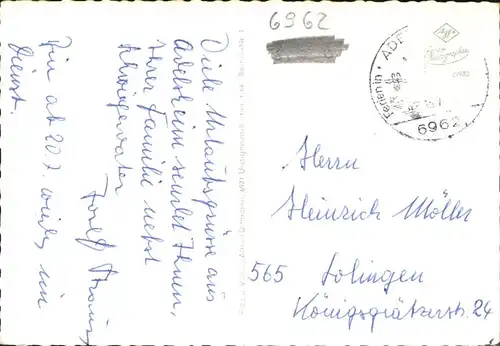 6962
Viele Urlaubsgrüsse aus
Adelsheim sendet Ihnen,
Ihrer Familie nebst
Schwiegervater
Josef
Bin ab 20.7. wieder im
Dienst.
Ferien in · ADE
6962
Herrn
Heinrich Möller
565 Solingen
Königsgrätzerstr. 24